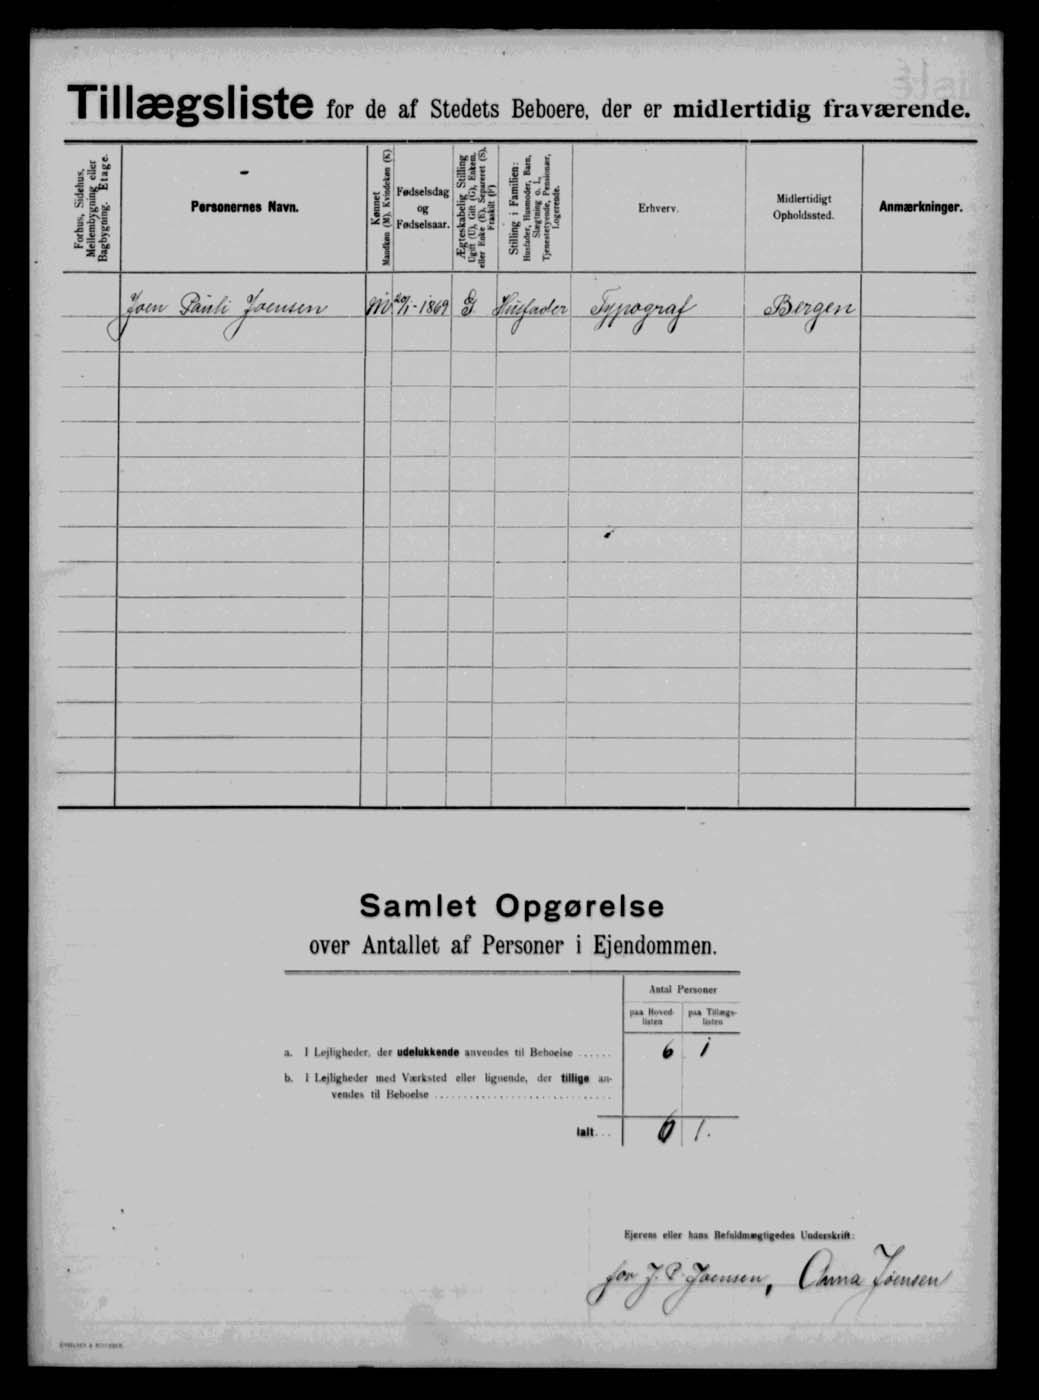 Tillægsliste for de af Stedets Beboere, der er midlertidig fraværende.
Forhus, Sidehus, Mellembygning eller Bagbygning. Etage.
Personernes Navn.
Kønnet
Mandkøn (M), Kvindekøn (K)
Fødselsdag
og
Fødselsaar.
Ægteskabelig Stilling
Ugift (U), Gift (G), Enkem. eller Enke (E), Separeret (S), Fraskilt (F)
Stilling i Familien:
Husfader, Husmoder, Barn, Slægtning o. l., Tjenestetyende, Pensionær, Logerende.
Erhverv.
Midlertidigt
Opholdssted.
Anmærkninger.
Joen Pauli Joensen M 20/1-1869 G Husfader Typograf Bergen
Samlet Opgørelse
over Antallet af Personer i Ejendommen.
Antal Personer
paa Hoved-
listen
paa Tillægs-
listen
a. I Lejligheder, der udelukkende anvendes til Beboelse ...... 6 1
b. I Lejligheder med Værksted eller lignende, der tillige an-
vendes til Beboelse
Ialt... 6 1.
Ejerens eller hans Befuldmægtigedes Underskrift:
for J. P. Joensen, Anna Joensen